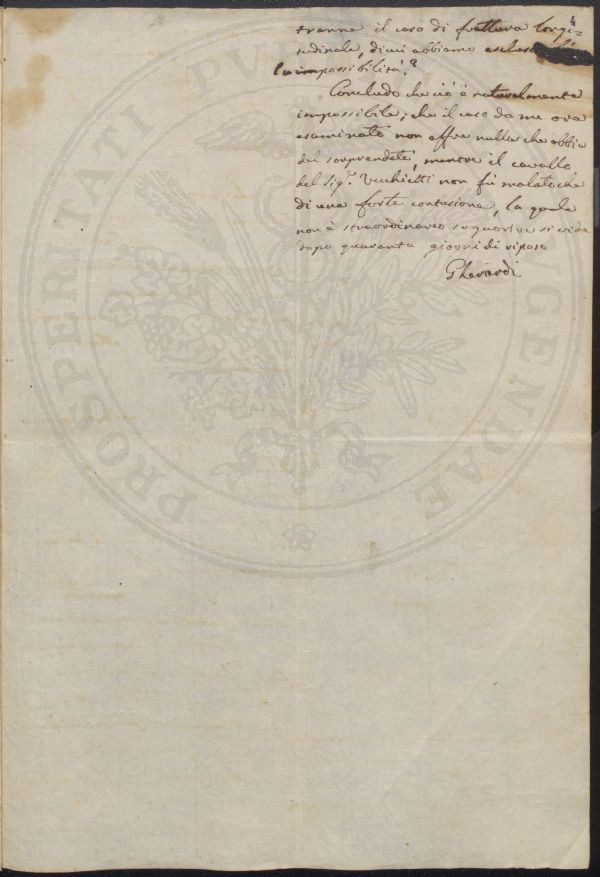 4
tranne il caso di frattura longi-
tudinale, di cui abbiamo escluso
la impossibilità?
Concludo che ciò è naturalmente
impossibile; che il caso da me ora
esaminato non offre nulla che abbia
del sorprendete, mentre il cavallo
del Sig.r Vecchietti non fù malato che
di una forte contusione, la quale
non è straordinario se guarire si vide
dopo quaranta giorni di riposo
Gherardi
PROSPERITATI PUBL GENDAE